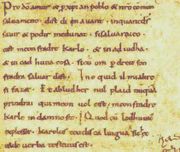 Pro dō amur & p xp̄ian poblo & nr̄o commun
saluament. dist di en auant. inquantds
sauir & podir medunat. sisaluaraeo.
cist meon fradre karlo. & in adiudha.
& in cad huna cosa. sicū om p dreit son
fradra saluar dist. Ino quid il mialtre
si faz&. & abludher nul plaid nūquā
prindrai qui meon uol cist meon fradre
karle in damno sit. Quod cū lodhuuic
explesset. karolus teudisca lingua
uerba testatus est.